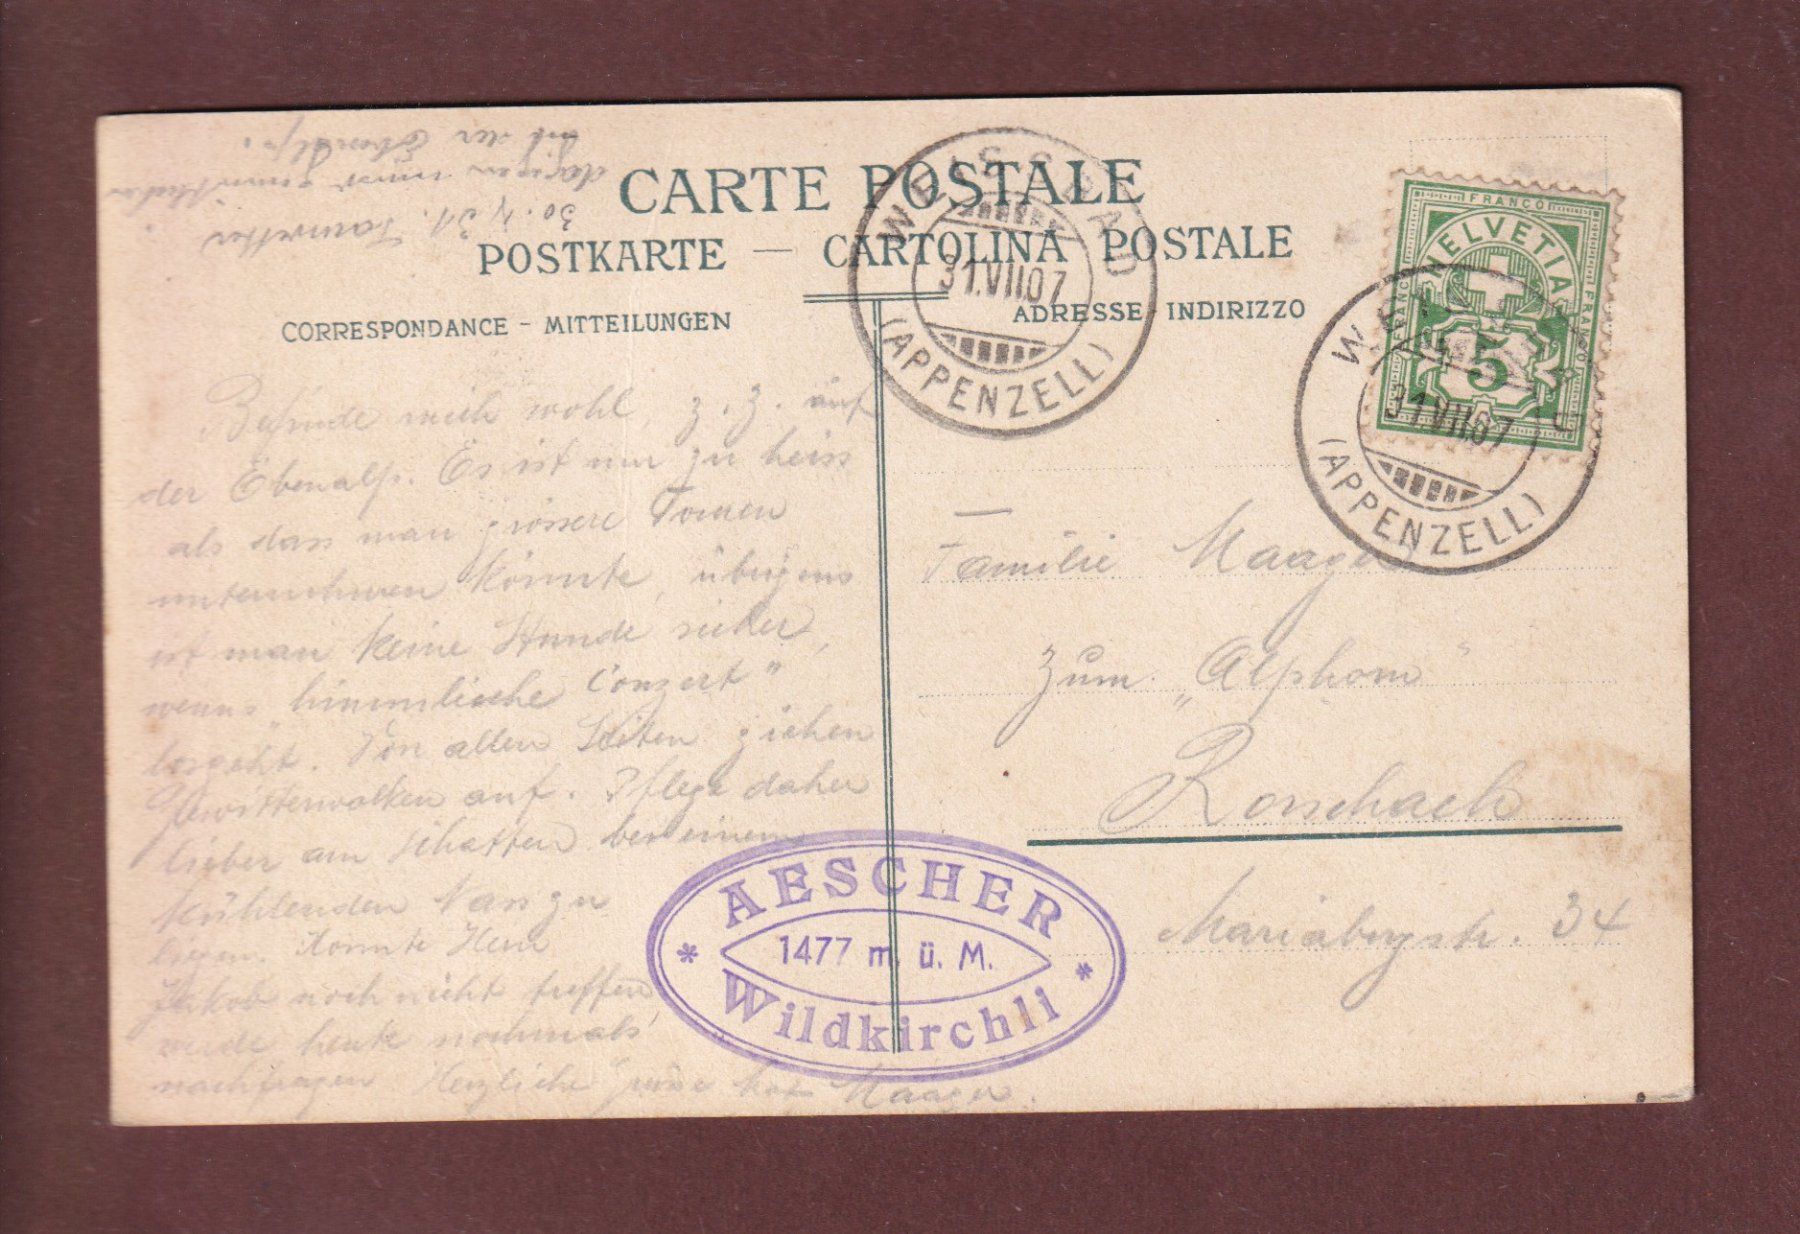 CARTE POSTALE
POSTKARTE — CARTOLINA POSTALE
CORRESPONDANCE - MITTEILUNGEN
ADRESSE - INDIRIZZO
WEISSBAD
31.VII.07
(APPENZELL)
FRANCO
HELVETIA
FRANCO
FRANCO
5
31.VII.07
(APPENZELL)
30. & 31.
dagegen
auf der Ebenalp.
Befinde mich wohl, z. Z. auf
der Ebenalp. Es ist nur zu heiss
als dass man grössere Touren
unternehmen könnte, übrigens
ist man keine Stunde sicher,
wenns "himmlische Conzert"
losgeht. Von allen Seiten ziehen
Gewitterwolken auf. Pflege daher
lieber am Schatten bei einem
kühlenden Nass zu
liegen. Konnte Herr
Jakob noch nicht treffen,
werde heute nochmals
nachfragen Herzliche Maager
Familie Maager
zum "Alphorn"
Rorschach
Mariabergstr. 34
AESCHER
1477 m. ü. M.
* Wildkirchli *